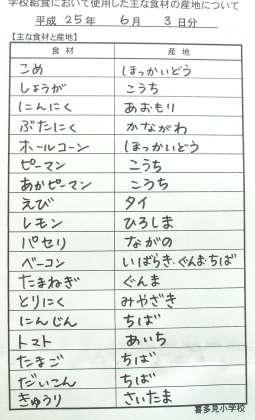 学校給食において使用した主な食材の産地について
平成 25年 6月 3日分
【主な食材と産地】
食材 産地
こめ ほっかいどう
しょうが こうち
にんにく あおもり
ぶたにく かながわ
ホールコーン ほっかいどう
ピーマン こうち
あかピーマン こうち
えび タイ
レモン ひろしま
パセリ ながの
ベーコン いばらき・ぐんま・ちば
たまねぎ ぐんま
とりにく みやざき
にんじん ちば
トマト あいち
たまご ちば
だいこん ちば
きゅうり さいたま
喜多見小学校